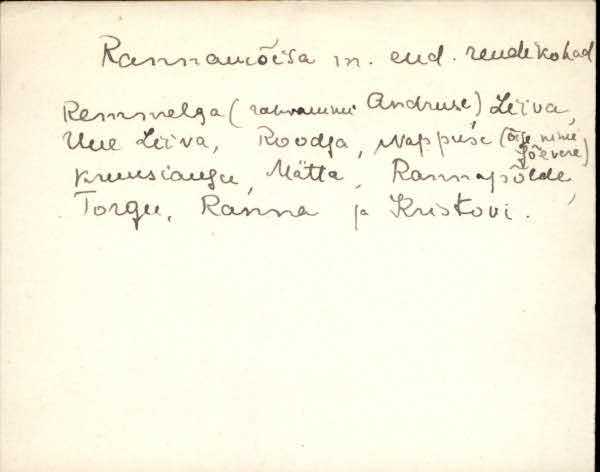 Rannamõisa m. end. rendikohad
Remmelga (rahvanimi Andruse) Liiva,
Uue Liiva, Roodja, Nappuse (õige nimi
Jõevere)
Kruusiaugu, Mätta, Rannapõlde,
Torgu, Ranna ja Kristovi.